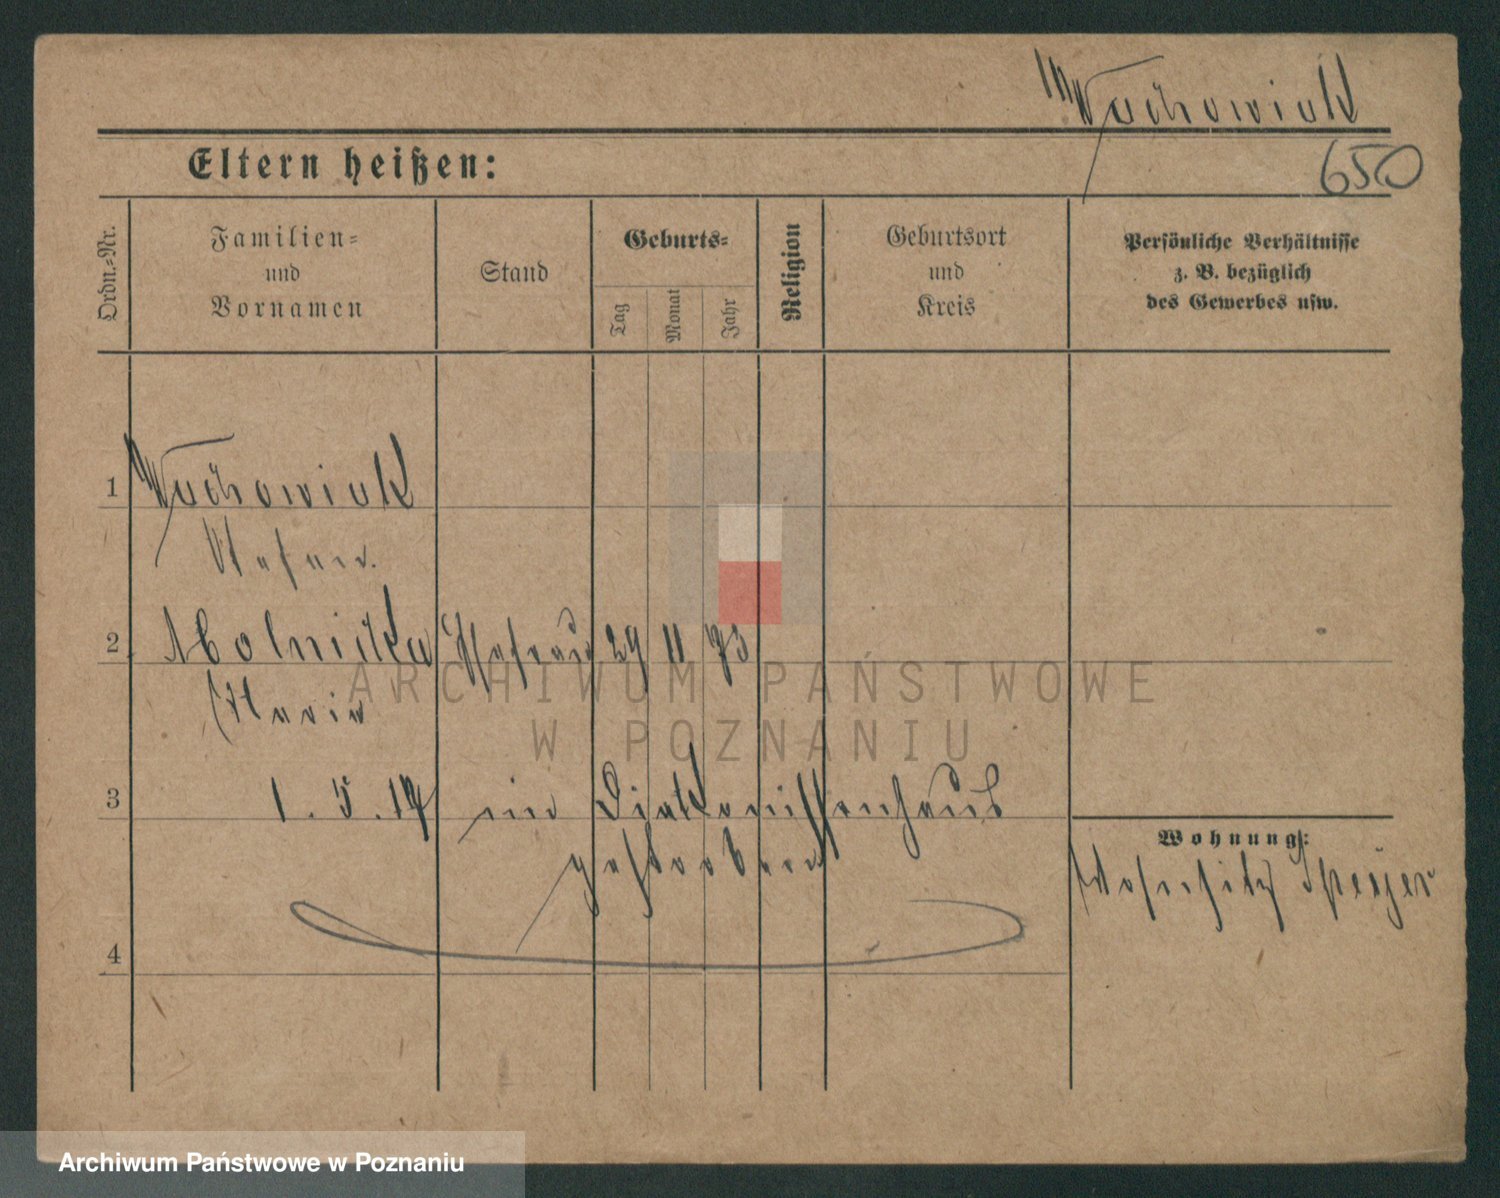 Wachowiak
650
Eltern heißen:
Ordn.-Nr.
Familien-
und
Vornamen
Stand
Geburts-
Tag
Monat
Jahr
Religion
Geburtsort
und
Kreis
Persönliche Verhältnisse
z. B. bezüglich
des Gewerbes usw.
1 Wachowiak
Stefan.
2 Molnicka Ehefrau 29 11 73
Maria
3 1. 5. 17 im Diakonissenhaus
gestorben
Wohnung:
Wohnsitz Speyer
4
ARCHIWUM PAŃSTWOWE
W POZNANIU
Archiwum Państwowe w Poznaniu